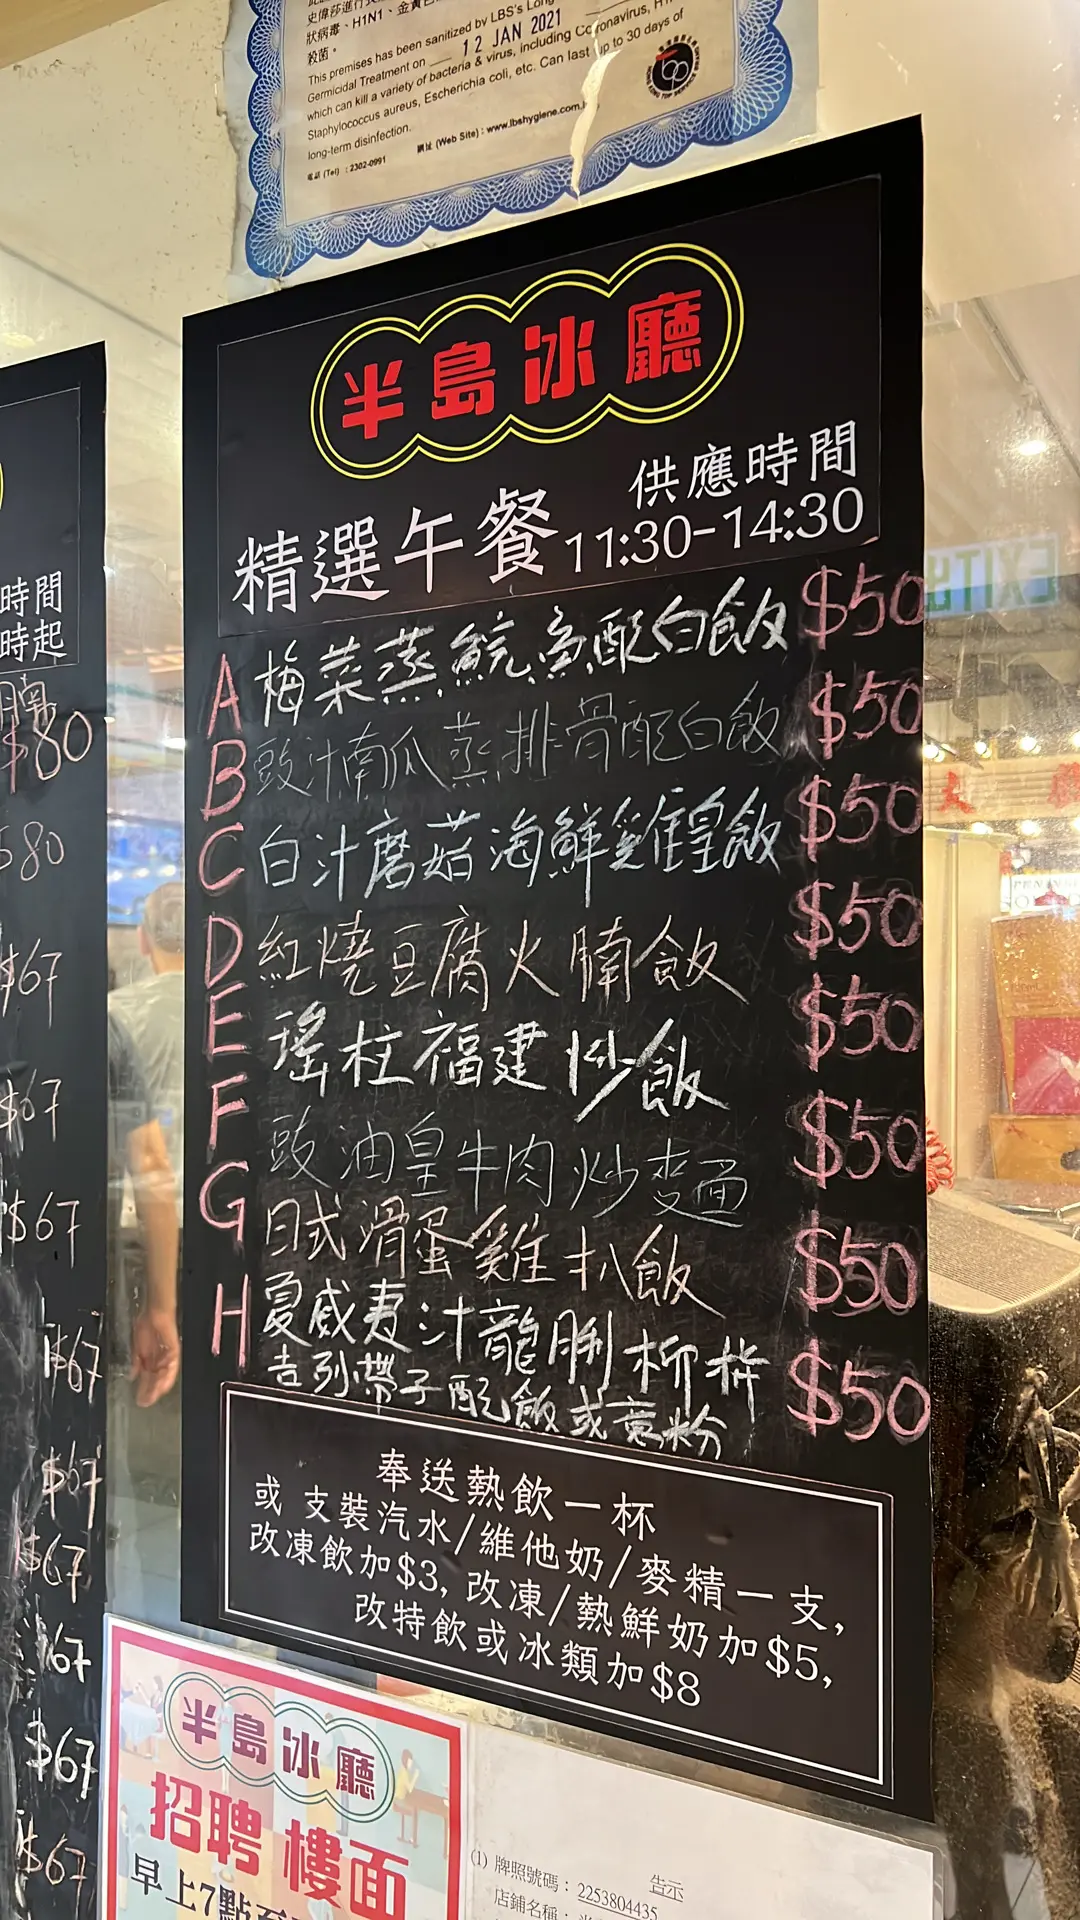 狀病毒、H1N1、金黃
殺菌。
This premises has been sanitized by LBS's Long
Germicidal Treatment on 12 JAN 2021
which can kill a variety of bacteria & virus, including Coronavirus, H1
Staphylococcus aureus, Escherichia coli, etc. Can last up to 30 days of
long-term disinfection.
電話 (Tel) : 2302-0991 網址 (Web Site) : www.lbshygiene.com.
半島冰廳
供應時間
精選午餐 11:30-14:30
A 梅菜蒸鯇魚配白飯 $50
B 豉汁南瓜蒸排骨配白飯 $50
C 白汁磨菇海鮮雞皇飯 $50
D 紅燒豆腐火腩飯 $50
E 瑤柱福建炒飯 $50
F 豉油皇牛肉炒麵 $50
G 日式滑蛋雞扒飯 $50
H 夏威夷汁龍脷柳拼 $50
吉列帶子配飯或意粉
奉送熱飲一杯
或 支裝汽水/維他奶/麥精一支,
改凍飲加$3, 改凍/熱鮮奶加$5,
改特飲或冰類加$8
時間
時起
腩
$80
$80
$67
$67
$67
$67
$67
$67
$67
$67
$67
EXIT
半島冰廳
招聘 樓面
早上7點至
告示
(1) 牌照號碼： 2253804435
店鋪名稱：